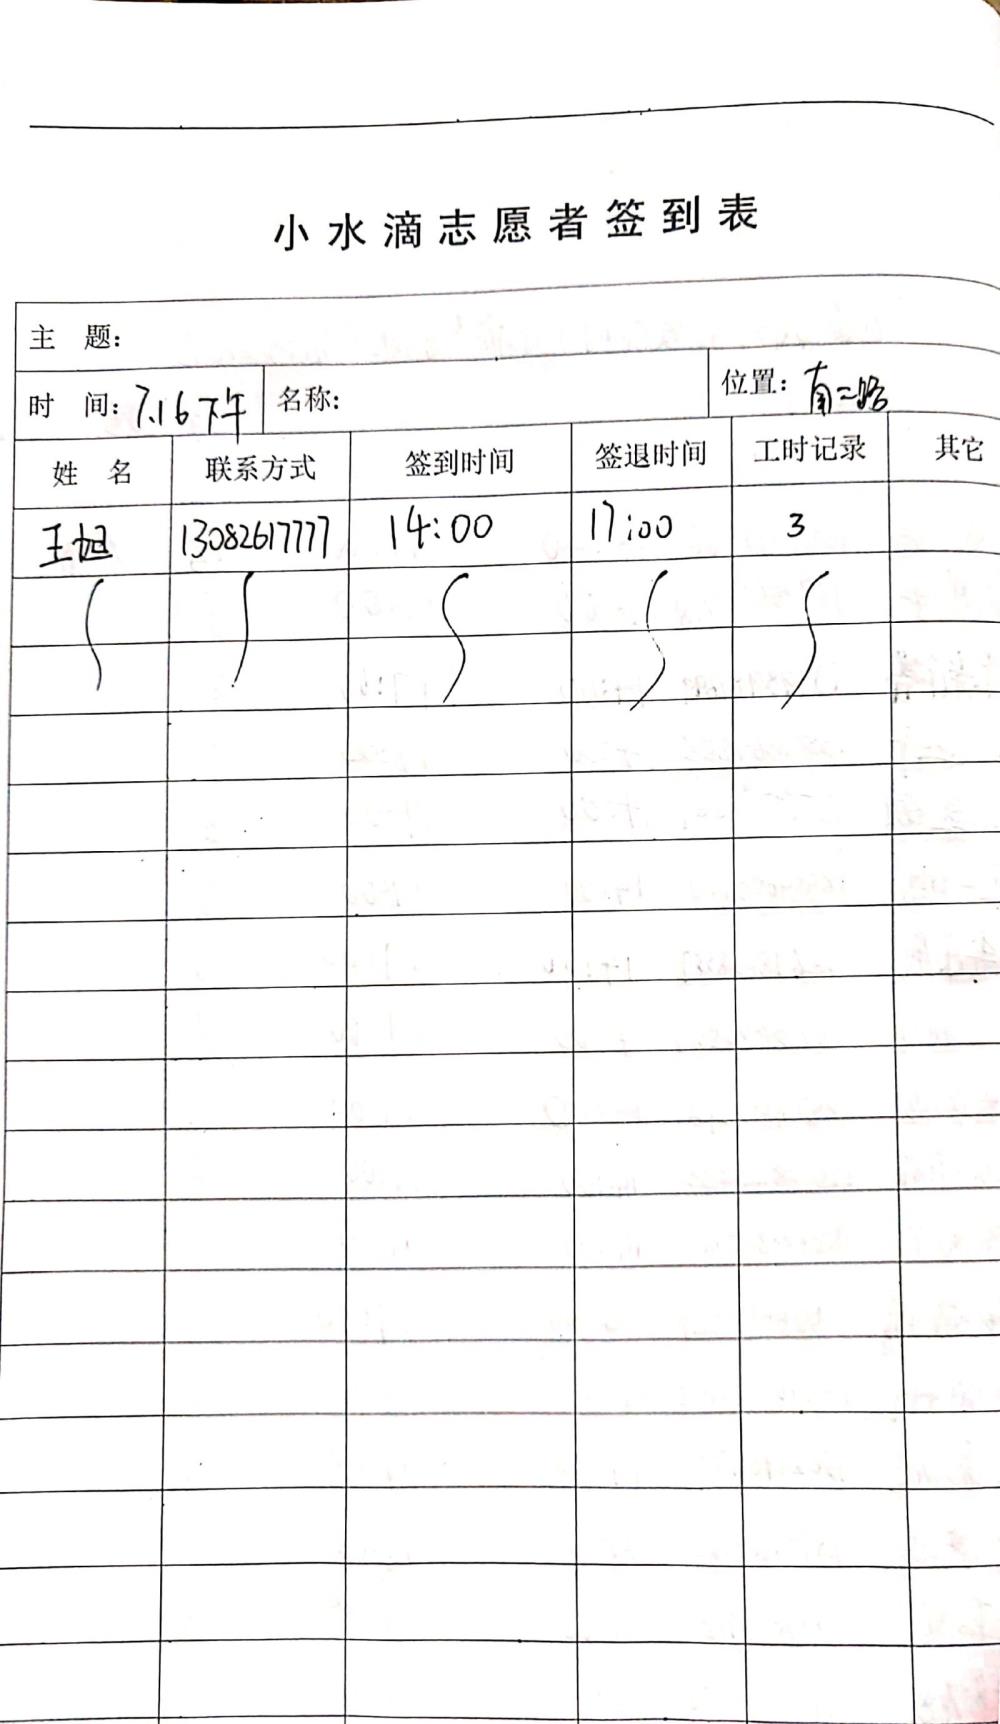 小水滴志愿者签到表
主 题:
时 间: 7.16下午 名称: 位置: 南二路
姓 名 联系方式 签到时间 签退时间 工时记录 其它
王旭 13082617777 14:00 17:00 3